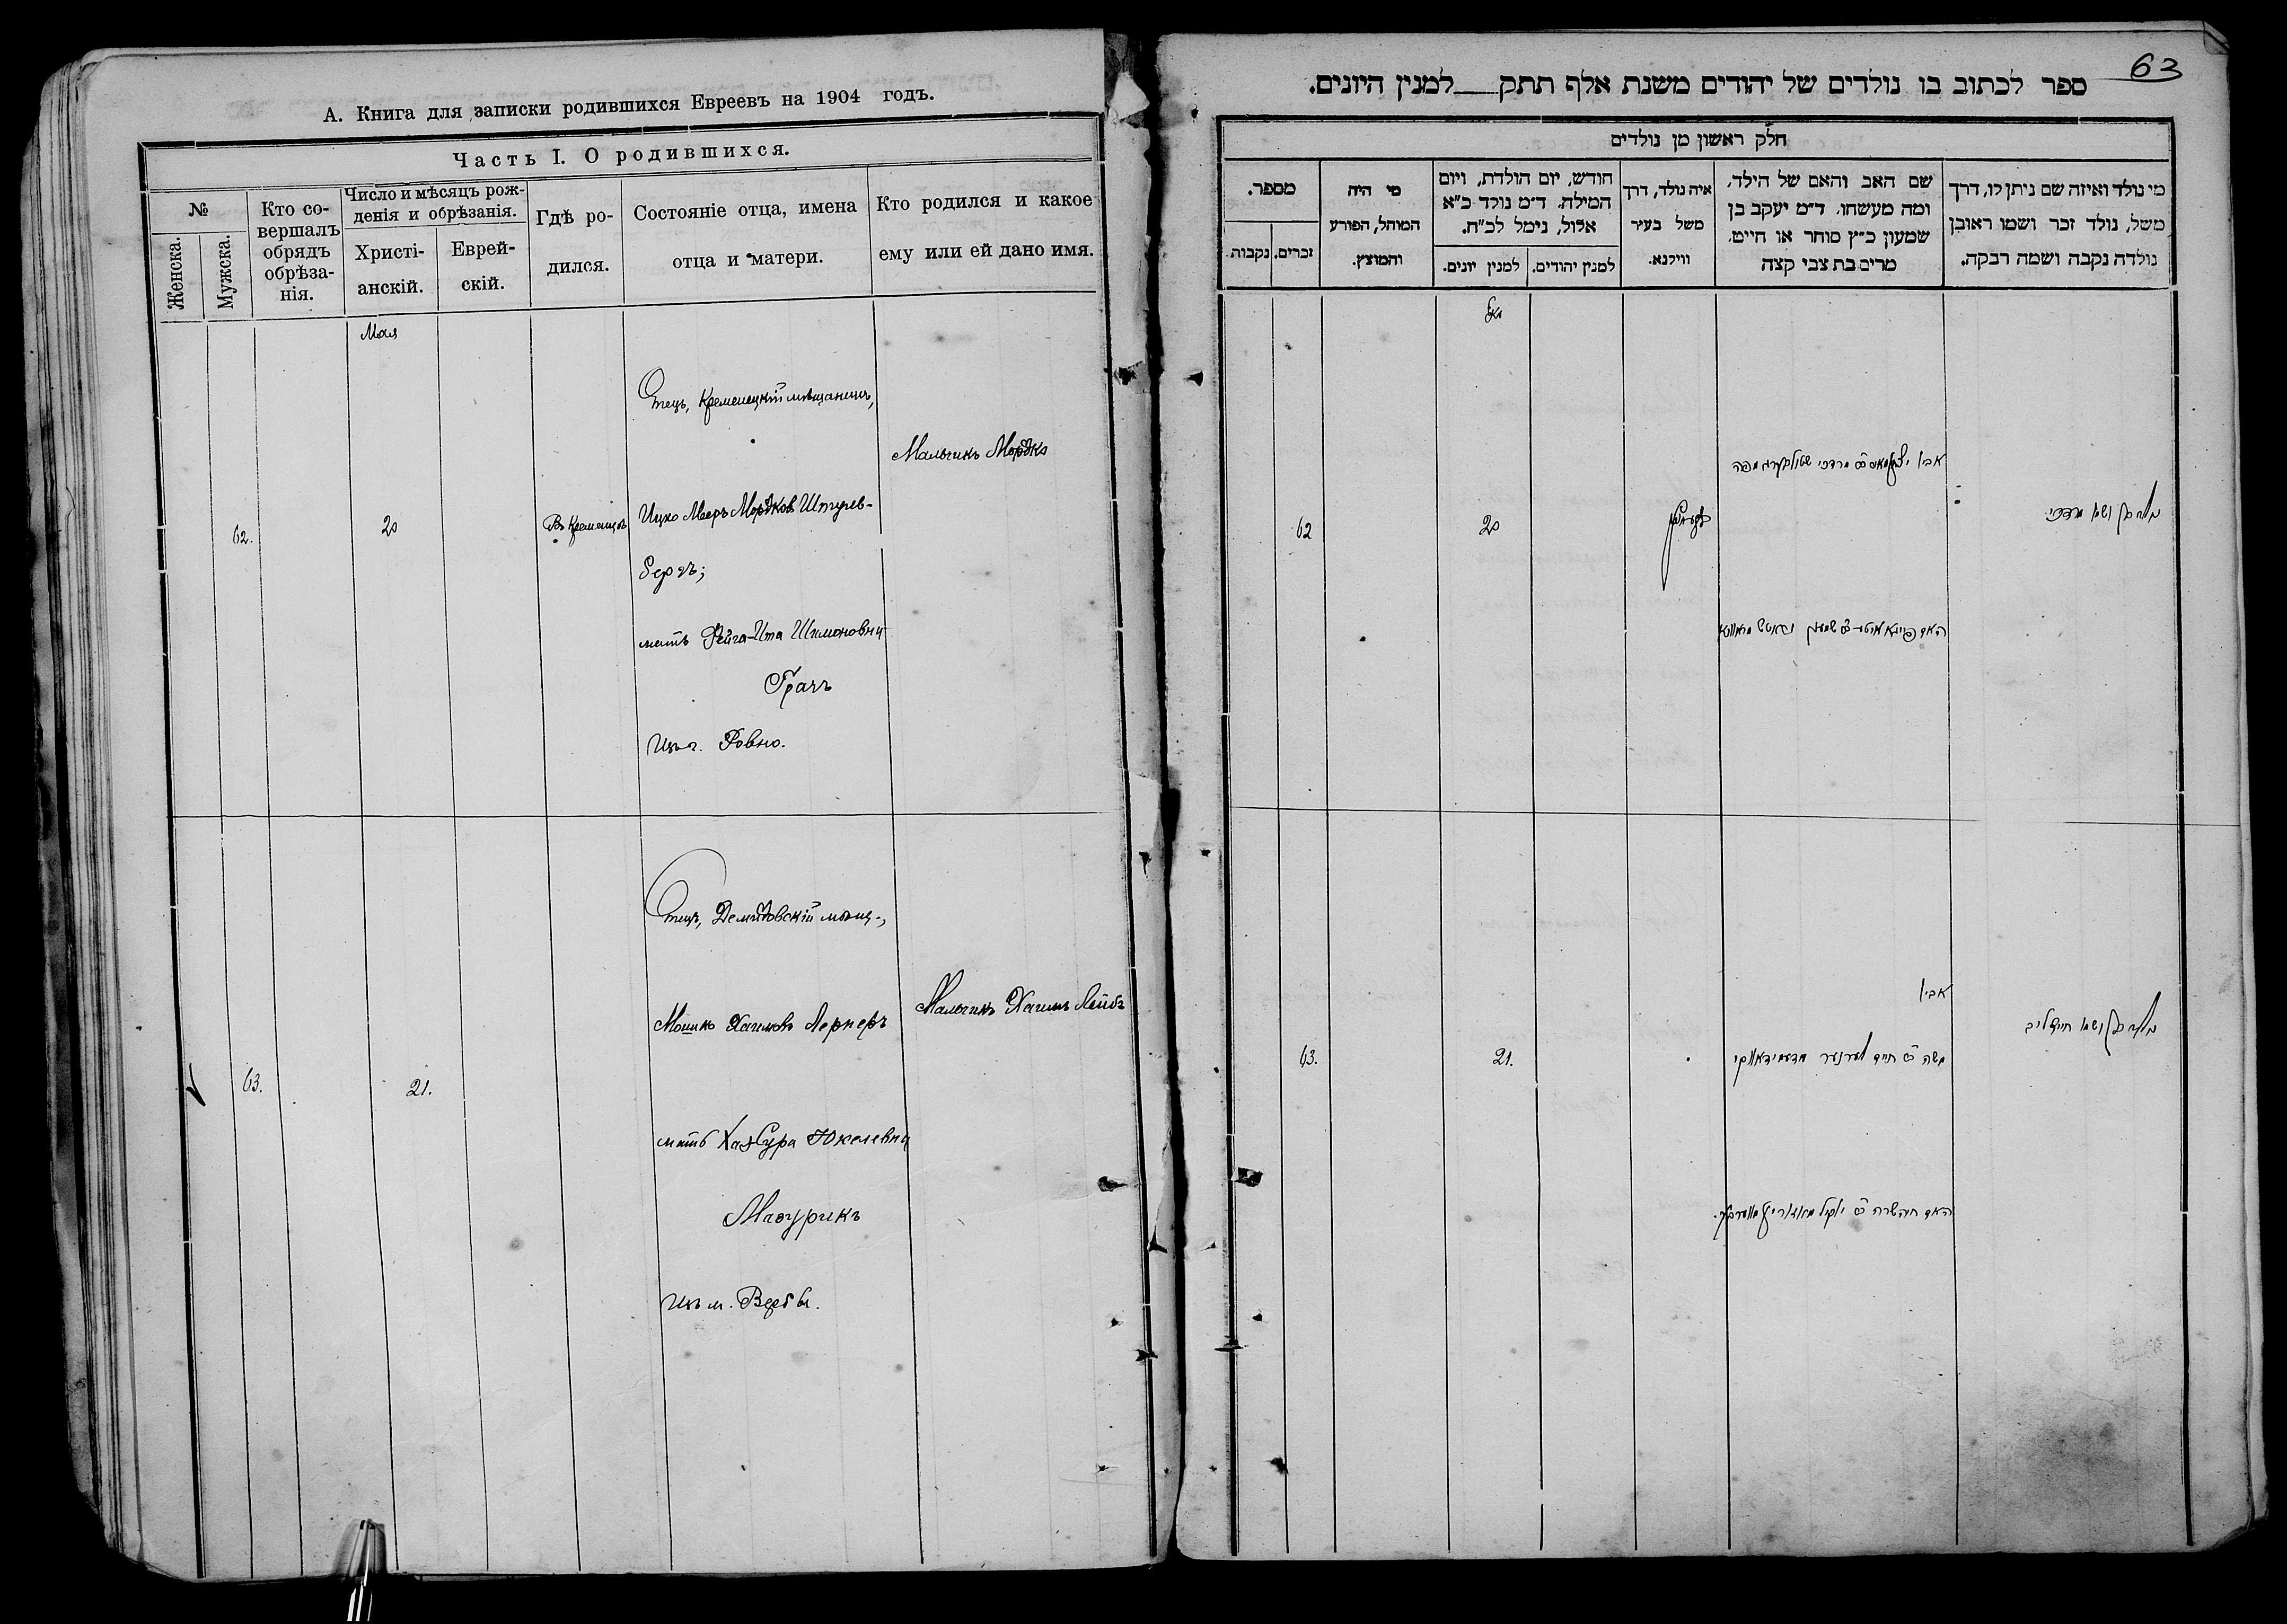 А. Книга для записки родившихся Евреевъ на 1904 годъ.
Часть I. О родившихся.
№
Женска.
Мужска.
Кто со-
вершалъ
обрядъ
обрѣза-
нія.
Число и мѣсяцъ рож-
денія и обрѣзанія.
Христі-
анскій.
Еврей-
скій.
Гдѣ ро-
дился.
Состояніе отца, имена
отца и матери.
Кто родился и какое
ему или ей дано имя.
Мая
62.
20
Въ Кременцѣ
Отецъ, Кременецкій мѣщанинъ,
Ицко Меер Мордков Штуль-
бергъ;
мать Фейга-Ита Шимоновна
Грачъ
изъ г. Ровно.
Мальчикъ Мордко
63.
21.
Отецъ, Демидовскій мѣщ.,
Мошко Хаимовъ Лернеръ
мать Хая Сура Юкелевна
Мазурикъ
изъ м. Вербы.
Мальчикъ Хаимъ Лейбъ
63
ספר לכתוב בו נולדים של יהודים משנת אלף תתק למנין היונים.
חלק ראשון מן נולדים
מי נולד ואיזה שם ניתן לו, דרך
משל, נולד זכר ושמו ראובן
נולדה נקבה ושמה רבקה.
שם האב והאם של הילד,
ומה מעשהו. ד״מ יעקב בן
שמעון כ״ץ סוחר או חייט,
מרים בת צבי קצה
איה נולד, דרך
משל בעיר
ווילנא.
חודש, יום הולדת, ויום
המילה. ד״מ נולד כ״א
אלול, נימל לכ״ח.
למנין יהודים.
למנין יונים.
מי היה
המוהל, הפורע
והמוצץ.
מספר.
זכרים.
נקבות.
מאי
ושמו מרדכי
אביו
מרדכי שטולבערג מפה
האם פייגא איטע שמעון
קרעמניץ
20
62
ושמו חיים ליב
אביו
משה חיים לערנער
האם חיה שרה יוקיל
21.
63.